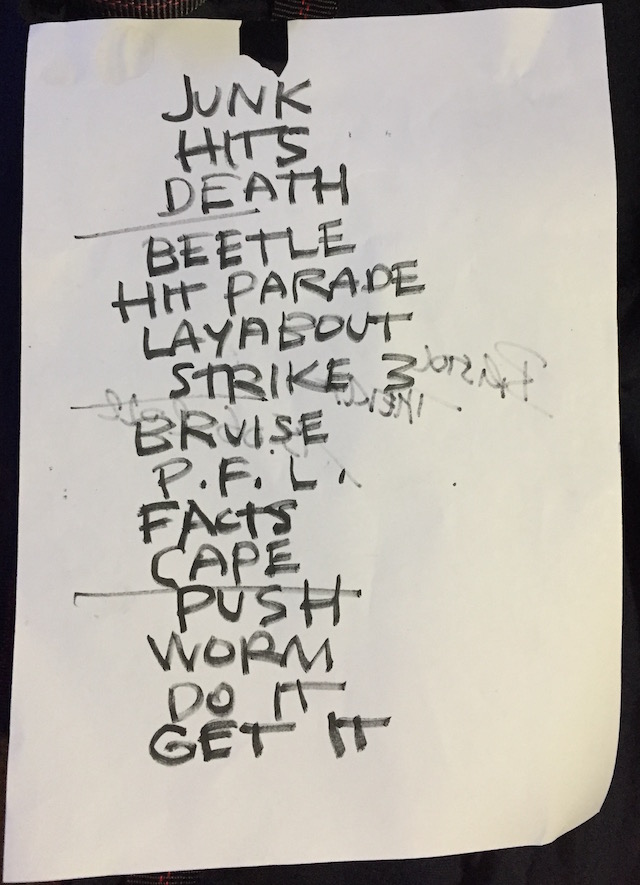 JUNK
HITS
DEATH
BEETLE
HIT PARADE
LAYABOUT
STRIKE 3
BRUISE
P.F.L.
FACTS
CAPE
PUSH
WORM
DO IT
GET IT